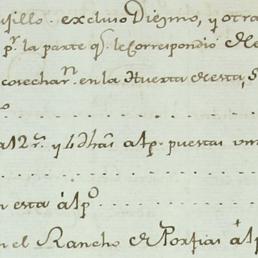 usillo. excluso Diezmo, y otra
pr. la parte qe. le Correspondió
cosecharn. en la Huerta de esta,
a 12 rs. y
puestas
n esta á 1 po
n el Rancho de Porfias á 1 p